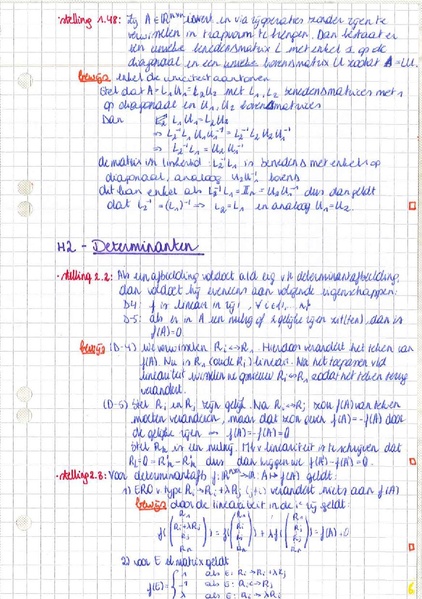 stelling 1.48: Zij A ∈ R^(n×n) inverteerb. en via rijoperaties zonder rijen te
verwisselen in trapvorm te brengen. Dan bestaat er
een unieke benedenmatrix L met enkel 1 op de
diagonaal en een unieke bovenmatrix U zodat A = LU.
bewijs enkel de uniciteit aantonen
Stel dat A = L₁U₁ = L₂U₂ met L₁, L₂ benedenmatrices met 1
op diagonaal en U₁, U₂ bovenmatrices
Dan L₁U₁ = L₂U₂
⇒ L₂⁻¹L₁U₁U₁⁻¹ = L₂⁻¹L₂U₂U₁⁻¹
⇒ L₂⁻¹L₁ = U₂U₁⁻¹
de matrix in linkerlid L₂⁻¹L₁ is beneden met enkel 1 op
diagonaal, analoog U₂U₁⁻¹ boven
dit kan enkel als L₂⁻¹L₁ = Iₙ = U₂U₁⁻¹ dus dan geldt
dat L₂⁻¹ = (L₁)⁻¹ ⇒ L₂ = L₁ en analoog U₁ = U₂.
H2 - Determinanten
stelling 2.2: Als een afbeelding voldoet a/d eig v/e determinantafbeelding,
dan voldoet hij eveneens aan volgende eigenschappen:
D-4: f is lineair in rij i, ∀ i ∈ {1, ..., n}
D-5: als er in A een nulrij of 2 gelijke rijen zit(ten), dan is
f(A) = 0
bewijs (D-4) we verwisselen Rᵢ ↔ R₁. Hierdoor verandert het teken van
f(A). Nu is R₁ (oude Rᵢ) lineair. Na het toepassen v/d
lineariteit wisselen we opnieuw Rᵢ ↔ R₁ zodat het teken terug
verandert.
(D-5) Stel Rᵢ en Rⱼ zijn gelijk. Na Rᵢ ↔ Rⱼ zou f(A) van teken
moeten veranderen, maar dat zou geven f(A) = -f(A) door
de gelijke rijen ⇒ f(A) = -f(A) = 0
Stel Rₖ is een nulrij. Mbv lineariteit is te schrijven dat
Rₖ = 0 = Rₖ - Rₖ dus dan krijgen we f(A) - f(A) = 0
stelling 2.3: Voor determinantafb f: R^(n×n) → R: A ↦ f(A) geldt:
1) ERO v. type Rᵢ → Rᵢ + λRⱼ (j≠i) verandert niets aan f(A)
bewijs door de lineariteit in de iᵉ rij geldt:
f(R₁ Rᵢ+λRⱼ Rⱼ Rₙ) = f(R₁ Rᵢ Rⱼ Rₙ) + λf(R₁ Rⱼ Rⱼ Rₙ) = f(A) + 0
2) voor E el. matrix geldt
f(E) = { 1 als E: Rᵢ → Rᵢ + λRⱼ
-1 als E: Rᵢ ↔ Rⱼ
λ als E: Rᵢ → λRᵢ
6